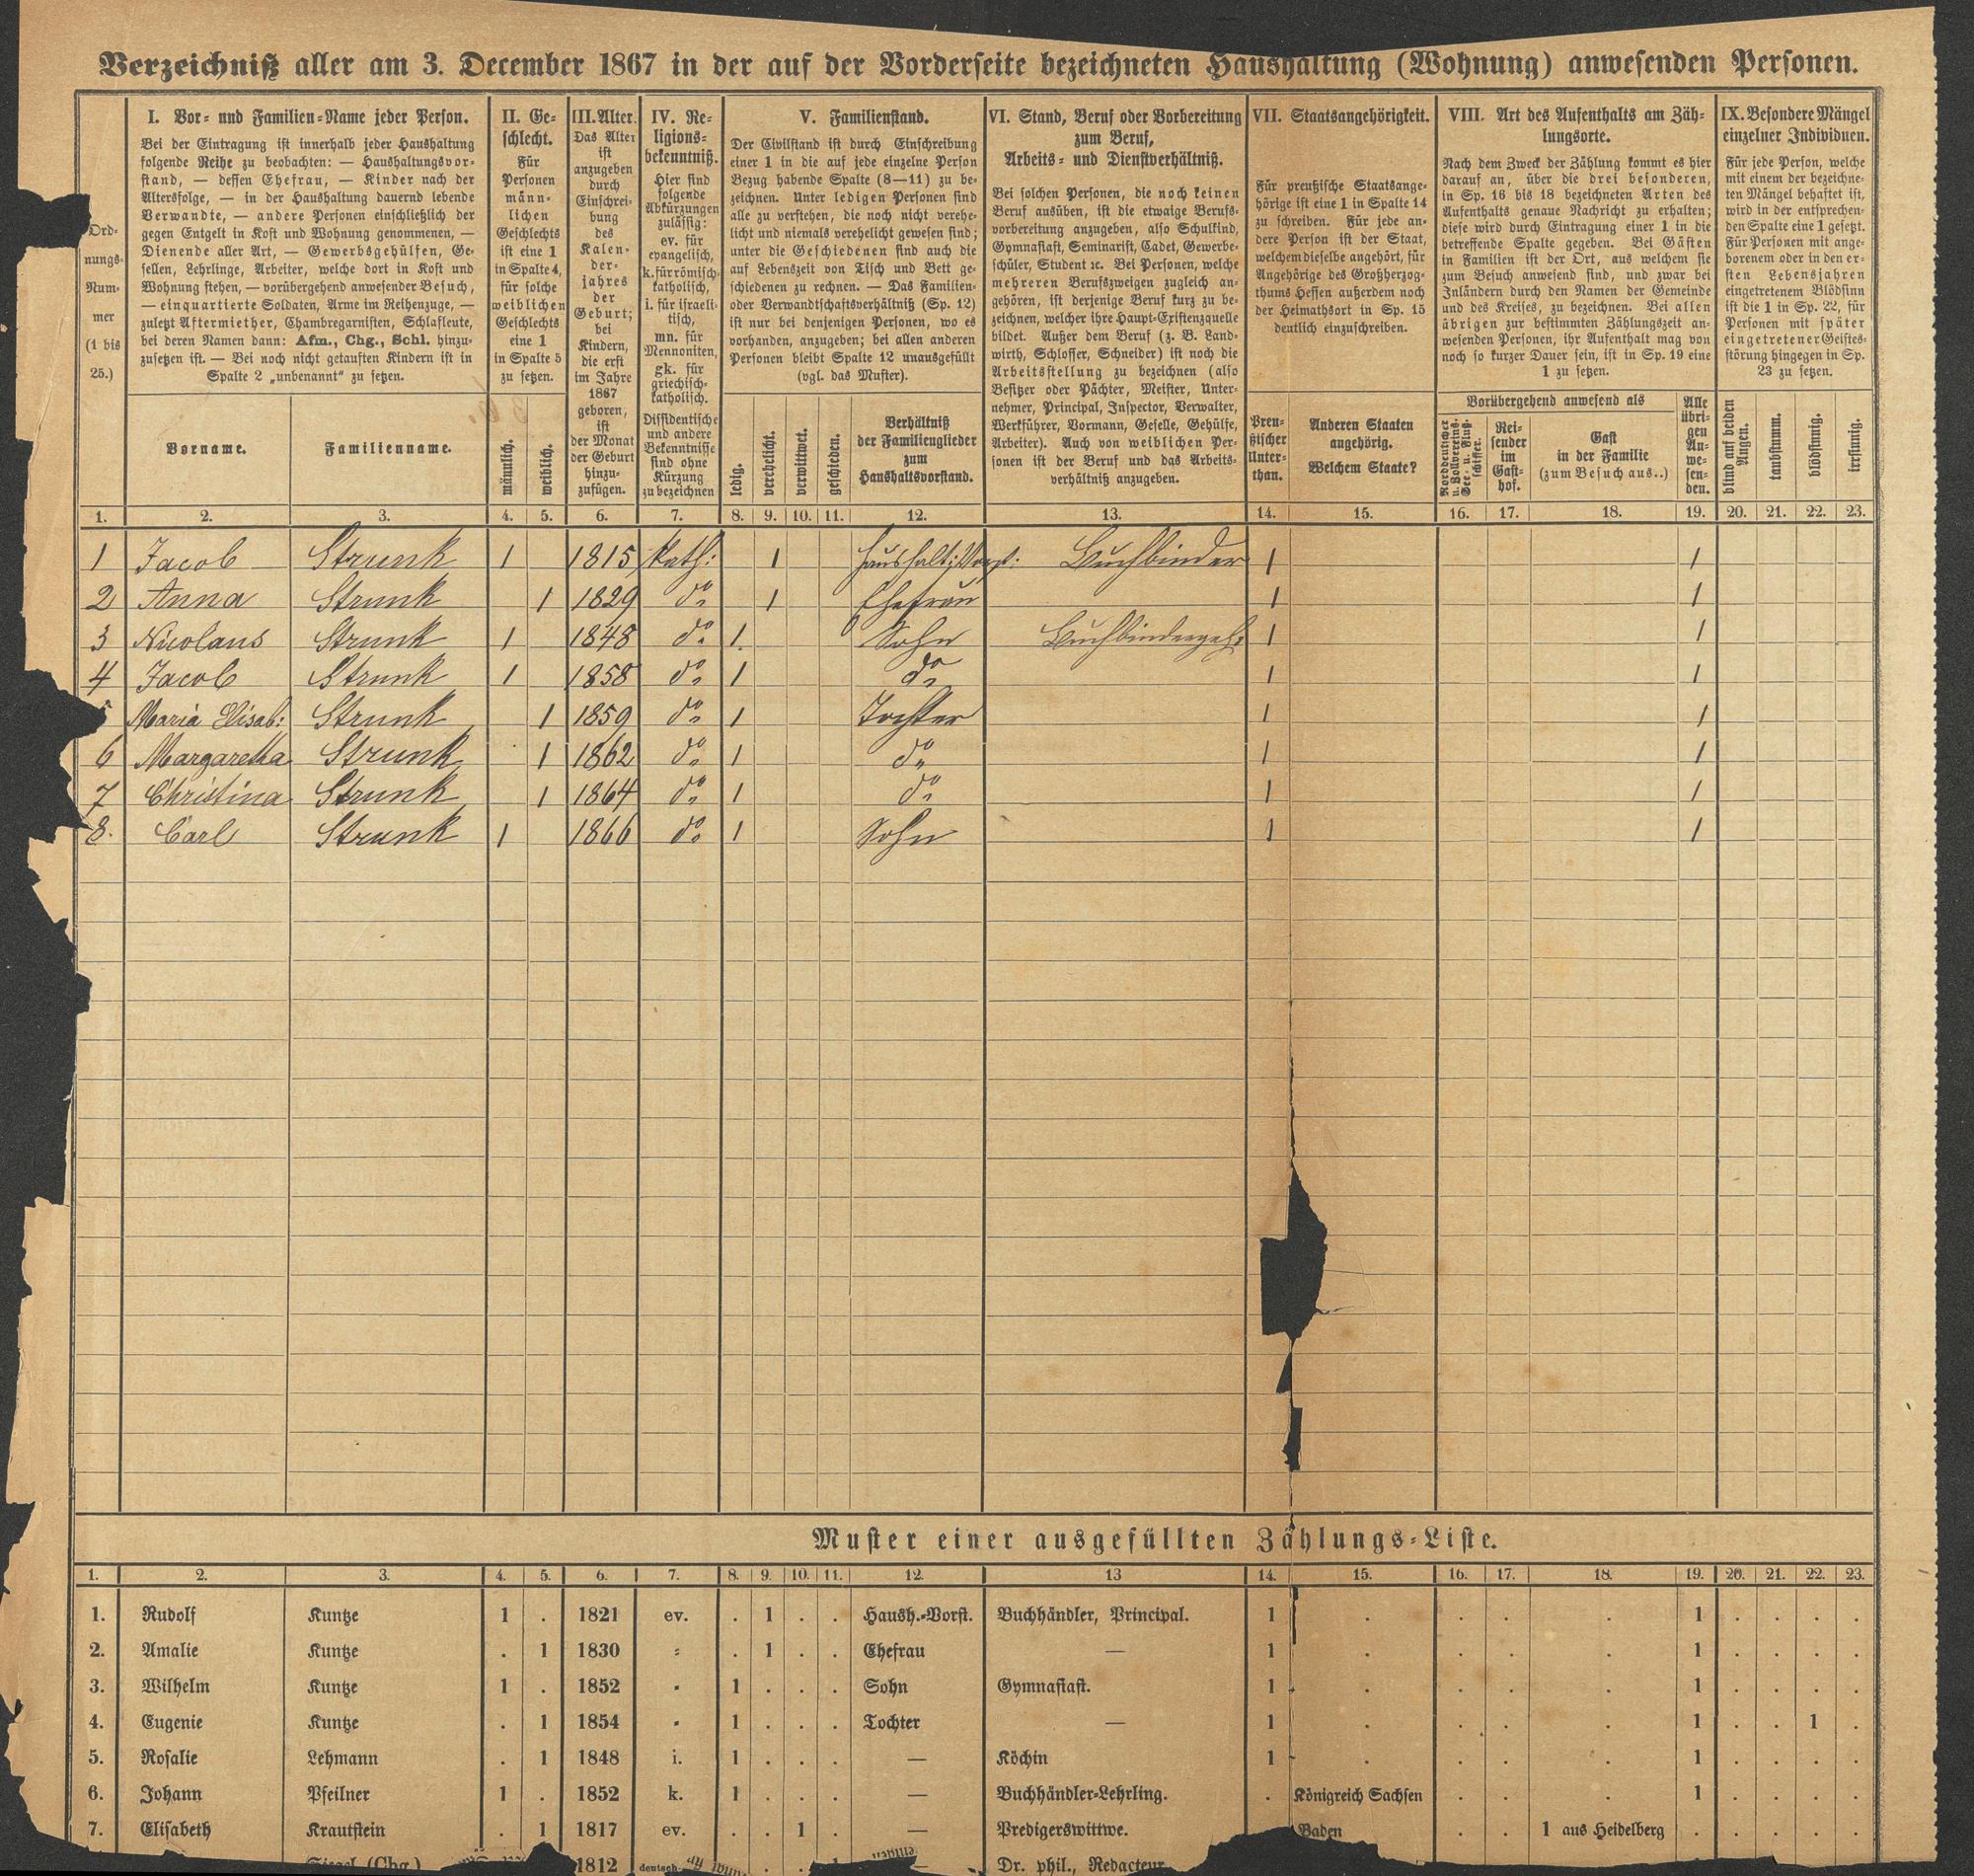 Verzeichniß aller am 3. December 1867 in der auf der Vorderseite bezeichneten Haushaltung (Wohnung) anwesenden Personen.
Ord-
nungs-
Num-
mer
(1 bis
25.)
I. Vor- und Familien-Name jeder Person.
Bei der Eintragung ist innerhalb jeder Haushaltung
folgende Reihe zu beobachten: — Haushaltungsvor-
stand, — dessen Ehefrau, — Kinder nach der
Altersfolge, — in der Haushaltung dauernd lebende
Verwandte, — andere Personen einschließlich der
gegen Entgelt in Kost und Wohnung genommenen, —
Dienende aller Art, — Gewerbsgehülfen, Ge-
sellen, Lehrlinge, Arbeiter, welche dort in Kost und
Wohnung stehen, — vorübergehend anwesender Besuch,
— einquartierte Soldaten, Arme im Reihenzuge, —
zuletzt Aftermiether, Chambregarnisten, Schlafleute,
bei deren Namen dann: Afm., Chg., Schl. hinzu-
zusetzen ist. — Bei noch nicht getauften Kindern ist in
Spalte 2 „unbenannt“ zu setzen.
Vorname.
Familienname.
II. Ge-
schlecht.
Für
Personen
männ-
lichen
Geschlechts
ist eine 1
in Spalte 4,
für solche
weiblichen
Geschlechts
eine 1
in Spalte 5
zu setzen.
männlich.
weiblich.
III. Alter.
Das Alter
ist
anzugeben
durch
Einschrei-
bung
des
Kalen-
der-
jahres
der
Geburt;
bei
Kindern,
die erst
im Jahre
1867
geboren,
ist
der Monat
der Geburt
hinzu-
zufügen.
IV. Re-
ligions-
bekenntniß.
Hier sind
folgende
Abkürzungen
zulässig:
ev. für
evangelisch,
k. für römisch-
katholisch,
i. für israeli-
tisch,
mn. für
Mennoniten,
gk. für
griechisch-
katholisch.
Dissidentische
und andere
Bekenntnisse
sind ohne
Kürzung
zu bezeichnen
V. Familienstand.
Der Civilstand ist durch Einschreibung
einer 1 in die auf jede einzelne Person
Bezug habende Spalte (8—11) zu be-
zeichnen. Unter ledigen Personen sind
alle zu verstehen, die noch nicht verehe-
licht und niemals verehelicht gewesen sind;
unter die Geschiedenen sind auch die
auf Lebenszeit von Tisch und Bett ge-
schiedenen zu rechnen. — Das Familien-
oder Verwandtschaftsverhältniß (Sp. 12)
ist nur bei denjenigen Personen, wo es
vorhanden, anzugeben; bei allen anderen
Personen bleibt Spalte 12 unausgefüllt
(vgl. das Muster).
ledig.
verehelicht.
verwittwet.
geschieden.
Verhältniß
der Familienglieder
zum
Haushaltsvorstand.
VI. Stand, Beruf oder Vorbereitung
zum Beruf,
Arbeits- und Dienstverhältniß.
Bei solchen Personen, die noch keinen
Beruf ausüben, ist die etwaige Berufs-
vorbereitung anzugeben, also Schulkind,
Gymnasiast, Seminarist, Cadet, Gewerbe-
schüler, Student ꝛc. Bei Personen, welche
mehreren Berufszweigen zugleich an-
gehören, ist derjenige Beruf kurz zu be-
zeichnen, welcher ihre Haupt-Existenzquelle
bildet. Außer dem Beruf (z. B. Land-
wirth, Schlosser, Schneider) ist noch die
Arbeitsstellung zu bezeichnen (also
Besitzer oder Pächter, Meister, Unter-
nehmer, Principal, Inspector, Verwalter,
Werkführer, Vormann, Geselle, Gehülfe,
Arbeiter). Auch von weiblichen Per-
sonen ist der Beruf und das Arbeits-
verhältniß anzugeben.
VII. Staatsangehörigkeit.
Für preußische Staatsange-
hörige ist eine 1 in Spalte 14
zu schreiben. Für jede an-
dere Person ist der Staat,
welchem dieselbe angehört, für
Angehörige des Großherzog-
thums Hessen außerdem noch
der Heimathsort in Sp. 15
deutlich einzuschreiben.
Preu-
ßischer
Unter-
than.
Anderen Staaten
angehörig.
Welchem Staate?
VIII. Art des Aufenthalts am Zäh-
lungsorte.
Nach dem Zweck der Zählung kommt es hier
darauf an, über die drei besonderen,
in Sp. 16 bis 18 bezeichneten Arten des
Aufenthalts genaue Nachricht zu erhalten;
diese wird durch Eintragung einer 1 in die
betreffende Spalte gegeben. Bei Gästen
in Familien ist der Ort, aus welchem sie
zum Besuch anwesend sind, und zwar bei
Inländern durch den Namen der Gemeinde
und des Kreises, zu bezeichnen. Bei allen
übrigen zur bestimmten Zählungszeit an-
wesenden Personen, ihr Aufenthalt mag von
noch so kurzer Dauer sein, ist in Sp. 19 eine
1 zu setzen.
Vorübergehend anwesend als
Norddeutscher
u. Zollvereins-
See- u. Fluß-
schiffer.
Rei-
sender
im
Gast-
hof.
Gast
in der Familie
(zum Besuch aus..)
Alle
übri-
gen
An-
we-
sen-
den.
IX. Besondere Mängel
einzelner Individuen.
Für jede Person, welche
mit einem der bezeichne-
ten Mängel behaftet ist,
wird in der entsprechen-
den Spalte eine 1 gesetzt.
Für Personen mit ange-
borenem oder in den er-
sten Lebensjahren
eingetretenem Blödsinn
ist die 1 in Sp. 22, für
Personen mit später
eingetretener Geistes-
störung hingegen in Sp.
23 zu setzen.
blind auf beiden
Augen.
taubstumm.
blödsinnig.
irrsinnig.
1. 2. 3. 4. 5. 6. 7. 8. 9. 10. 11. 12. 13. 14. 15. 16. 17. 18. 19. 20. 21. 22. 23.
1 Jacob Strunk 1 1815 kath: 1 Haushalt:Vorst: Buchbinder 1 1
2 Anna Strunk 1 1829 do 1 Ehefrau 1 1
3 Nicolaus Strunk 1 1848 do 1. Sohn Buchbindergeh: 1 1
4 Jacob Strunk 1 1858 do 1 do 1 1
5 Maria Elisab: Strunk 1 1859 do 1 Tochter 1 1
6 Margaretha Strunk 1 1862 do 1 do 1 1
7 Christina Strunk 1 1864 do 1 do 1 1
8. Carl Strunk 1 1866 do 1 Sohn 1 1
Muster einer ausgefüllten Zählungs-Liste.
1. 2. 3. 4. 5. 6. 7. 8. 9. 10. 11. 12. 13 14. 15. 16. 17. 18. 19. 20. 21. 22. 23.
1. Rudolf Kuntze 1 . 1821 ev. . 1 . . Haush.-Vorst. Buchhändler, Principal. 1 . . . . 1 . . . .
2. Amalie Kuntze . 1 1830 = . 1 . . Ehefrau — 1 . . . . 1 . . . .
3. Wilhelm Kuntze 1 . 1852 " 1 . . . Sohn Gymnasiast. 1 . . . . 1 . . . .
4. Eugenie Kuntze . 1 1854 " 1 . . . Tochter — 1 . . . . 1 . . 1 .
5. Rosalie Lehmann . 1 1848 i. 1 . . . — Köchin 1 . . . . 1 . . . .
6. Johann Pfeilner 1 . 1852 k. 1 . . . — Buchhändler-Lehrling. . Königreich Sachsen . . . 1 . . . .
7. Elisabeth Krautstein . 1 1817 ev. . . 1 . — Predigerswittwe. Baden . . 1 aus Heidelberg . . . . .
(Chg.) 1812 deutsch- — Dr. phil., Redacteur